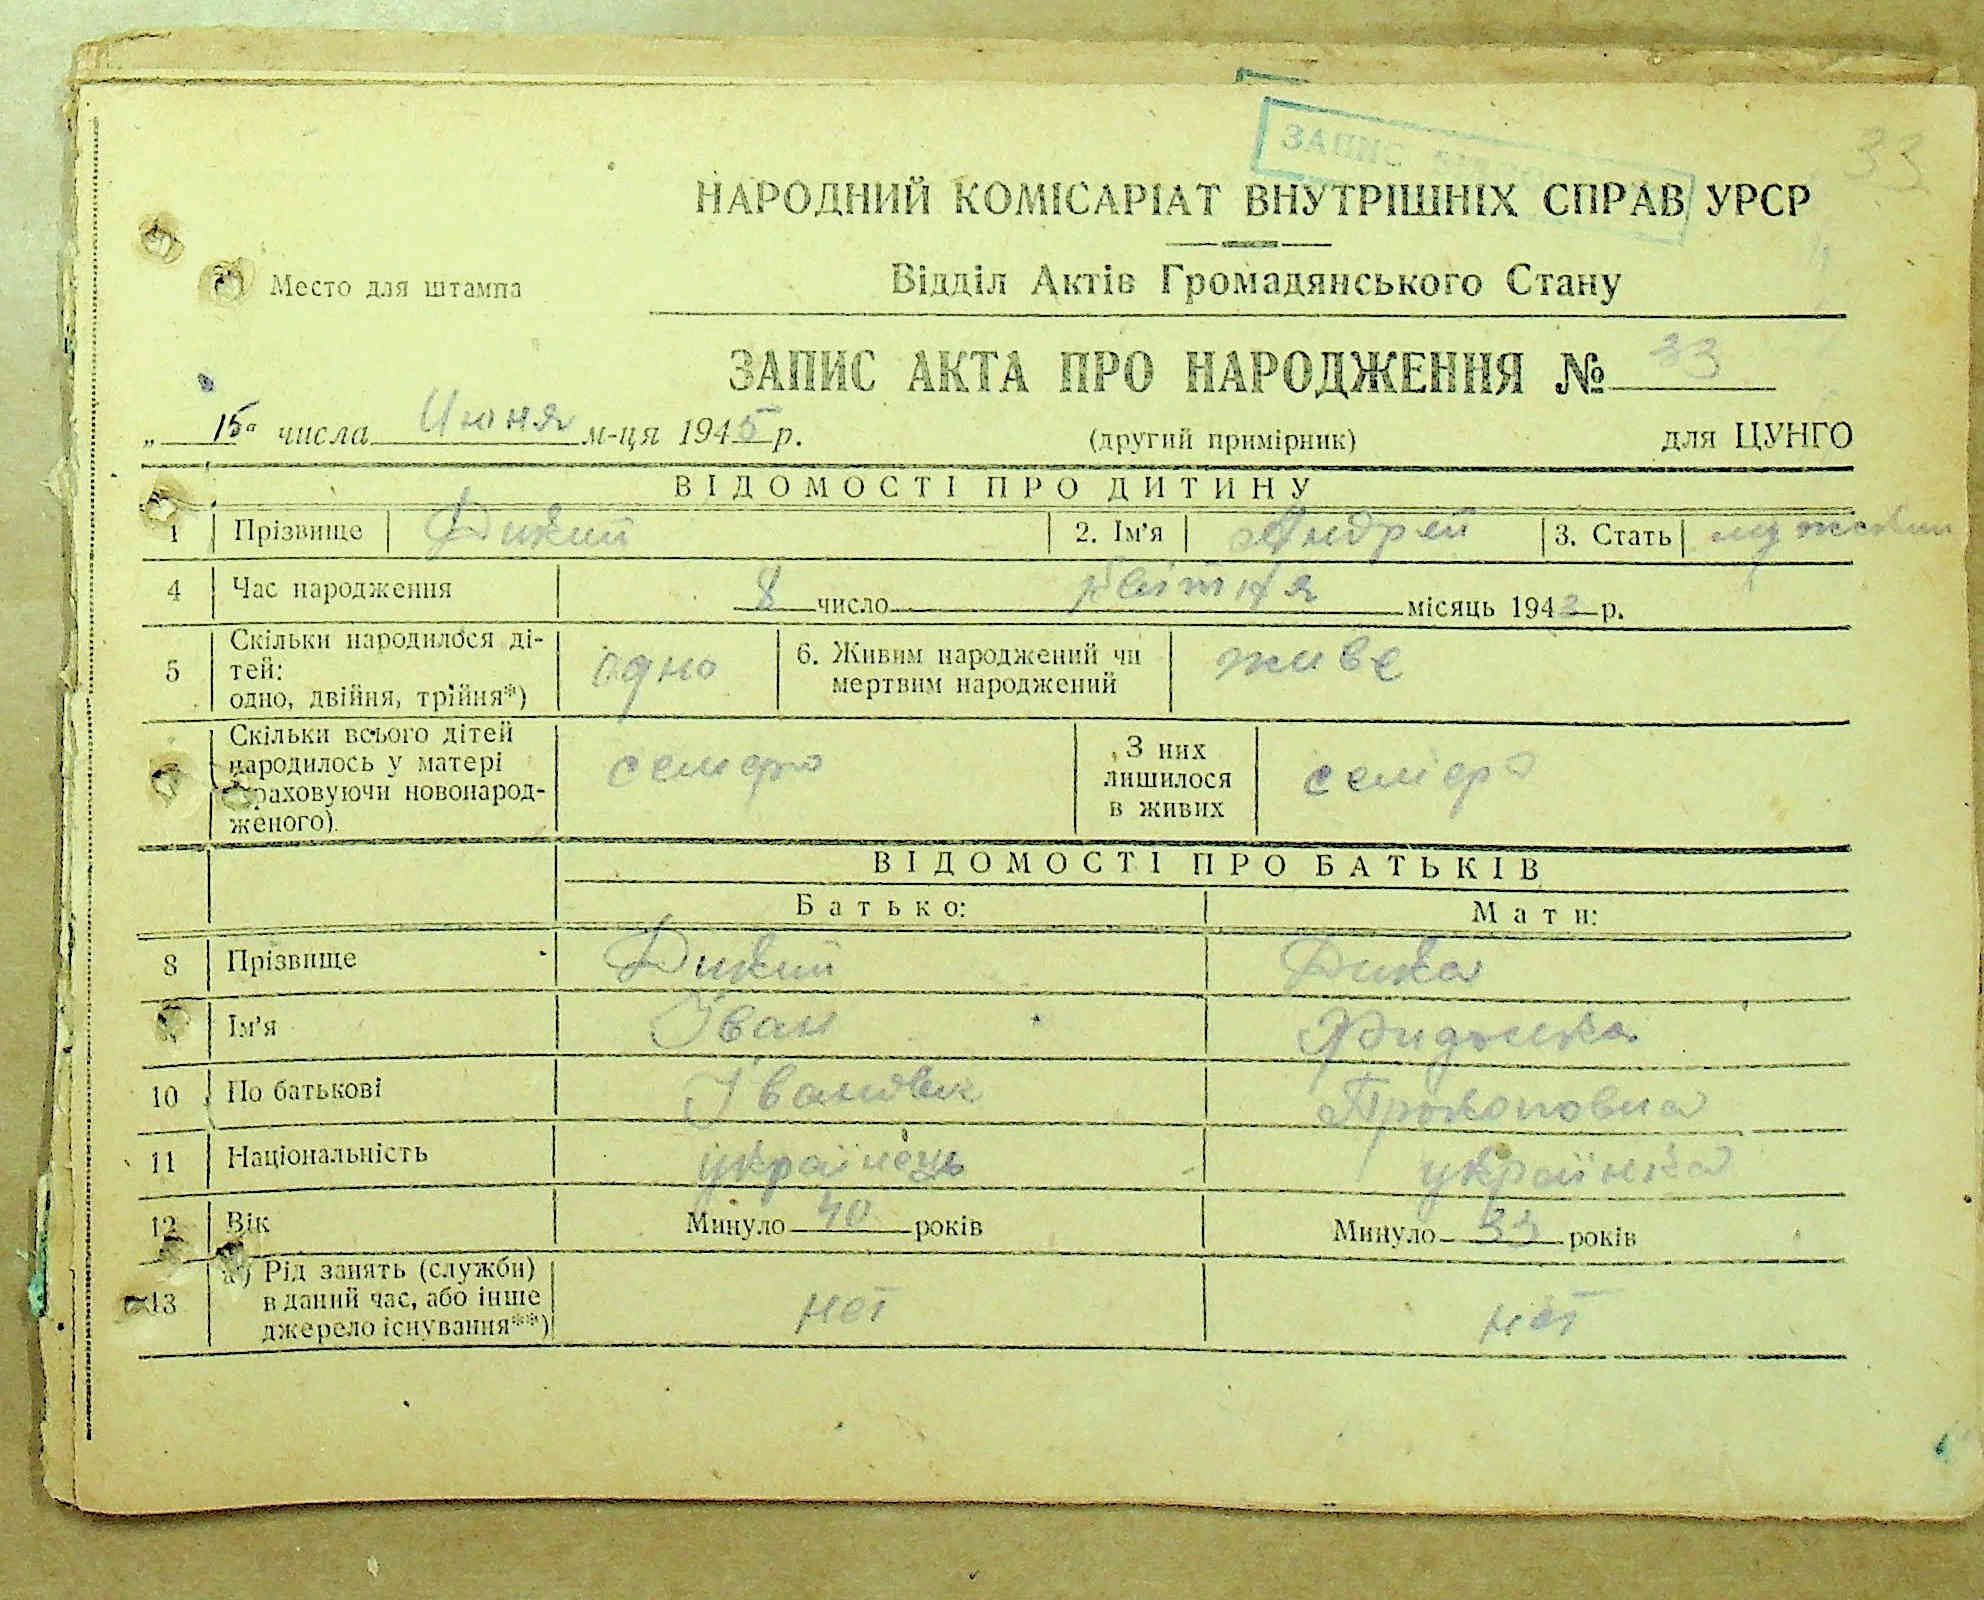 ЗАПИС
33
НАРОДНИЙ КОМІСАРІАТ ВНУТРІШНІХ СПРАВ УРСР
Место для штампа
Відділ Актів Громадянського Стану
ЗАПИС АКТА ПРО НАРОДЖЕННЯ № 33
„ 15 " числа Июня м-ця 1945 р. (другий примірник) для ЦУНГО
ВІДОМОСТІ ПРО ДИТИНУ
1 Прізвище Дикий 2. Ім'я Андрей 3. Стать
4 Час народження 8 число квітня місяць 1943 р.
5 Скільки народилося ді-
тей:
одно, двійня, трійня*) одно 6. Живим народжений чи
мертвим народжений живе
Скільки всього дітей
народилось у матері
раховуючи новонарод-
женого). семеро З них
лишилося
в живих семеро
ВІДОМОСТІ ПРО БАТЬКІВ
Батько: Мати:
8 Прізвище Дикий Дика
Ім'я Іван
10 По батькові Іванович Прокоповна
11 Національність українець українка
12 Вік Минуло 40 років Минуло 33 років
13 а) Рід занять (служби)
в даний час, або інше
джерело існування**) нет нет